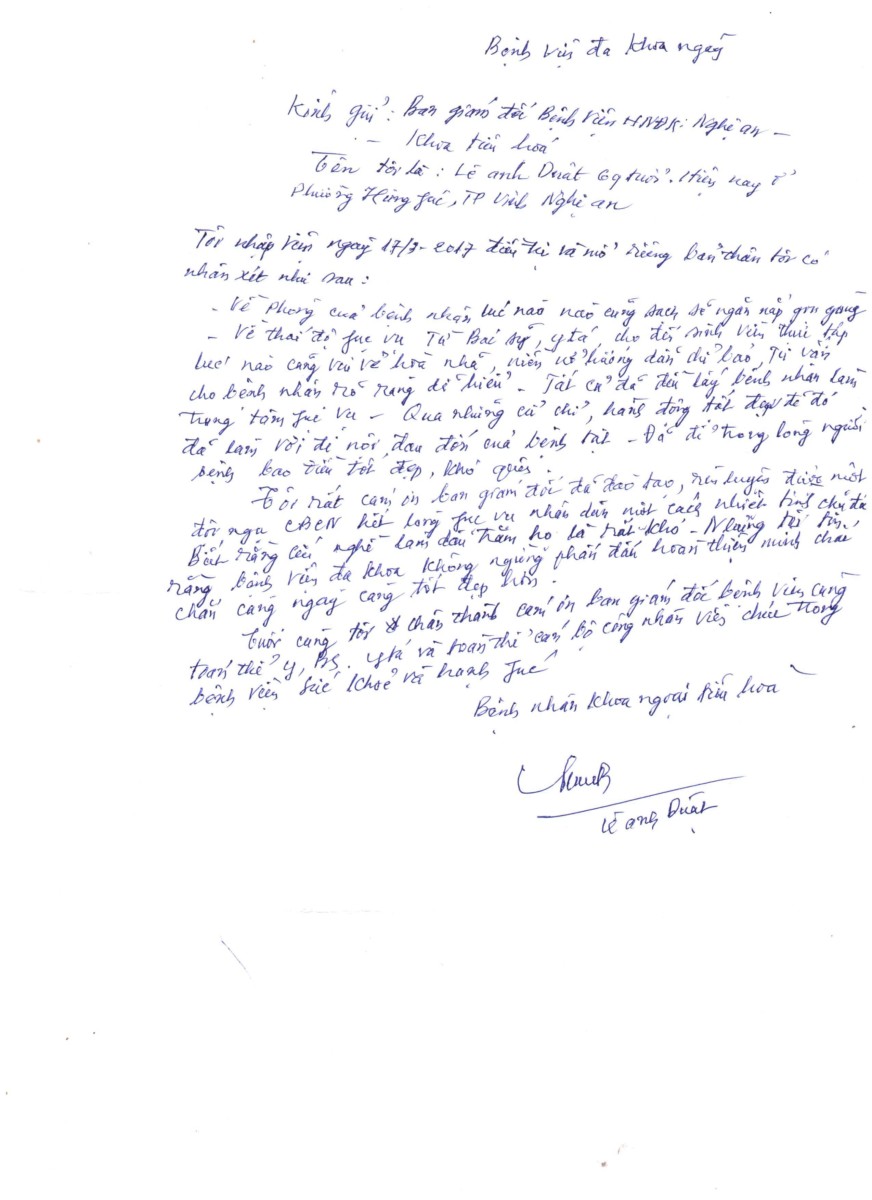 Bệnh viện đa khoa ngày
Kính gửi: Ban giám đốc Bệnh viện HNĐK: Nghệ an -
- Khoa tiêu hoá
Tên tôi là: Lê anh Duật 69 tuổi. Hiện nay ở
Phường Hưng fuć, TP Vinh Nghệ an
Tôi nhập viện ngày 17/3-2017 điều trị và mổ riêng bản thân tôi có
nhận xét như sau:
- Về phòng cuả bệnh nhân luć nào nào cũng sạch sẽ ngăn nắp gọn gàng
- Về thái độ fục vụ Từ Bác sỹ, y tá, cho đến sinh viên thực tập
luć nào cũng vui vẻ hoà nhã, niềm nở hướng dẫn chỉ bảo, Tư vấn
cho bệnh nhân rõ ràng dễ hiểu - Tất cả đã đều lấy bệnh nhân làm
trung tâm fục vụ - Qua những cử chỉ, hành động tốt đẹp đó
đã làm vơi đi nỗi đau đớn cuả bệnh tật - Để trong lòng người
bệnh bao điều tốt đẹp, khó quên.
Tôi rất cám ơn ban giám đốc đã đào tạo, rèn luyện được một
đội ngũ CBCN hết lòng fục vụ nhân dân một cách nhiệt tình chu đáo
Biết rằng cái nghề làm dâu trăm họ là rất khó - Nhưng tôi tin
rằng bệnh viện đa khoa không ngừng phấn đấu hoàn thiện mình chắc
chắn càng ngày càng tốt đẹp hơn.
Cuối cùng tôi chân thành cám ơn ban giám đốc bệnh viện cùng
toàn thể y, BS. y tá và toàn thể cán bộ công nhân viên chức trong
bệnh viện sức khoẻ và hạnh fuć
Bệnh nhân khoa ngoại tiêu hoá
Lê anh Duật